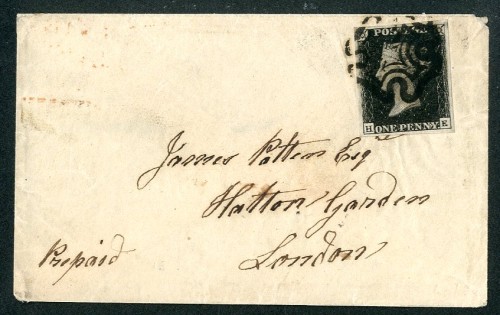 POSTAGE
H E
ONE PENNY
James Pattens Esq
Hatton Garden
London
Prepaid